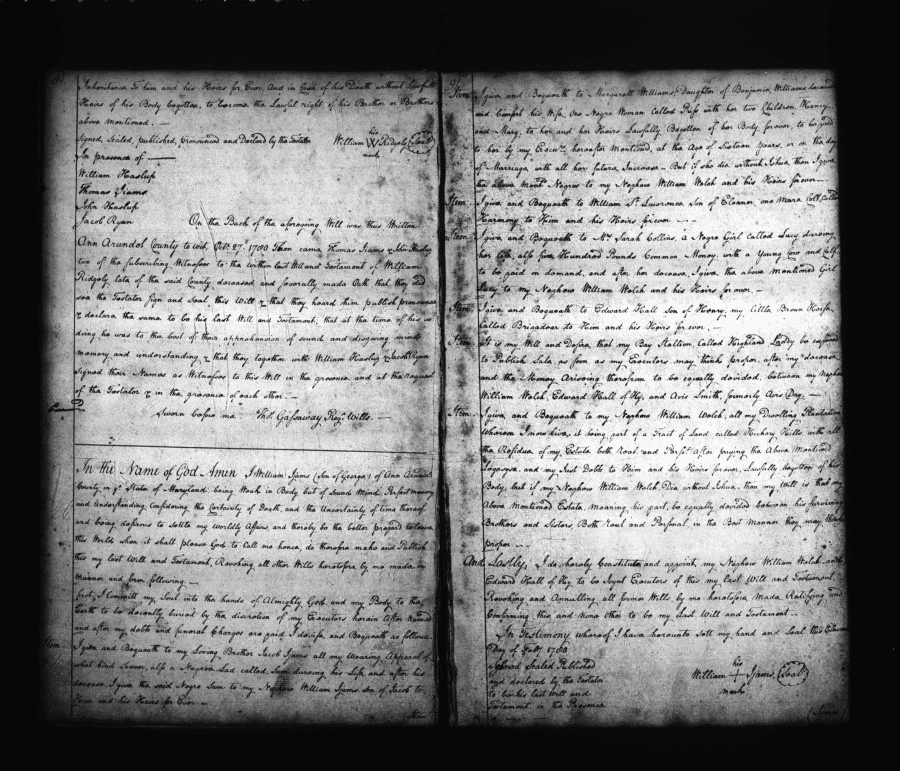 Inheritance To him and his Heirs for Ever And in Case of his Death without
Heirs of his Body begotten, to become the Lawful right of his Brother or Brothers
above mentioned. —
Signed, Sealed, published, pronounced and Declared by the Testator
In presence of —
William Haslup
Thomas Ijams
John Haslup
Jacob Ryan
his
William W Ridgely (Seal)
mark
On the Back of the aforegoing Will was thus Written
Ann Arundel County to wit, Octr. 27. 1780 Then came Thomas Ijams & John Haslup
two of the subscribing Witnesses to the within last Will and Testament of William
Ridgely late of the said County deceased and severally made Oath that they did
see the Testator sign and Seal this Will & that they heard him publish pronounce
& declare the same to be his last Will and Testament, that at the time of his so
doing he was to the best of their apprehension of sound and disposing mind
memory and understanding, & that they together with William Haslup & Jacob Ryan
signed their Names as Witnesses to this Will in the presence and at the request
of the Testator & in the presence of each other. —
Sworn before me Thos. Gassaway Regr. Wills —
In the Name of God Amen I William Ijams (Son of George) of Ann Arundel
County in ye State of Maryland being Weak in Body but of sound Mind Perfect memory
and Understanding, Considering the Certainty of Death, and the Uncertainty of time thereof
and being desirous to settle my Worldly Affairs, and thereby be the better prepared to leave
this World when it shall please God to Call me hence, do therefore make and Publish
this my last Will and Testament, Revoking all other Wills heretofore by me made in
Manner and form following. —
first, I Committ my Soul into the hands of Almighty God and my Body to the
Earth to be decently buried by the discretion of my Executors herein After Named
and after my debts and funeral Charges are paid I devise and Bequeath as follows
Item I give and Bequeath to my Loving Brother Jacob Ijams all my Wearing Apparel of
what kind soever, also a Negroe Lad called Sam during his Life and after his
decease, I give the said Negro Sam to my Nephew William Ijams son of Jacob to
Him and his Heirs for Ever —
Item
Item I give and Bequeath to Margarett Williams Daughter of Benjamin Williams deceased
and Comfort his Wife, One Negro Woman Called Priss with her two Children Hancy
and Mary, to her and her Heirs Lawfully Begotten of her Body forever, to be paid
to her by my Execurs. hereafter Mentioned, at the Age of Sixteen Years, or on the day
of Marriage, with all her future Increase - But if she die without Ishue, then I give
the above Mentd. Negros to my Nephew William Welch and his Heirs forever —
Item I give and Bequeath to William St. Lawrence, Son of Eleanor one Mare Colt, Called
Harmony to Him and his Heirs forever —
Item I give and Bequeath to Mrs. Sarah Collins, a Negro Girl Called Lucy during
her Life, also five Hundred Pounds Common Money, with a Young Cow and Calf
to be paid on demand, and after her decease, I give the above Mentioned Girl
Lucy to my Nephew William Welch and his Heirs forever. —
Item I give and Bequeath to Edward Hall Son of Henry, my little Brown Horse,
Called Brigadear to Him and his Heirs for ever. —
Item It is my Will and Desire, that my Bay Stallion, Called Highland Laddy be exposed
to Publick Sale, as soon as my Executors may think proper, after my decease
and the Money Arisoing therefrom to be equally devided, between my Nephew
William Welch, Edward Hall of Hy, and Avis Smith, formerly Avis Day. —
Item I give and Bequeath to my Nephew William Welch, all my Dwelling Plantation
whereon I now live, it being part of a Tract of Land called Hickory Hills with all
the Residue of my Estate both Real and Persl. After paying the Above Mentioned
Legacys, and my Just Debts to Him and his Heirs forever, Lawfully begotten of his
Body, but if my Nephew William Welch, Die without Ishue, then my Will is that my
Above Mentioned Estate, Meaning his part, be equally devided between his surviving
Brothers and Sisters, Both Real and Personal in the Best Manner they may think
proper —
And Lastly, I do hereby Constitute and appoint, my Nephew William Welch, and
Edward Hall of Hy, to be Joynt Executors of this my last Will and Testament,
Revoking and Annulling all former Wills by me heretofore Made, Ratifying and
Confirming this and None Other to be my last Will and Testament —
In Testimony whereof I have hereunto sett my hand and Seal this
Day of Feby 1780
Signed Sealed Published
and declared by the Testator
to be his last Will and
Testament, in the Presence
his
William + Ijams, (Seal)
mark